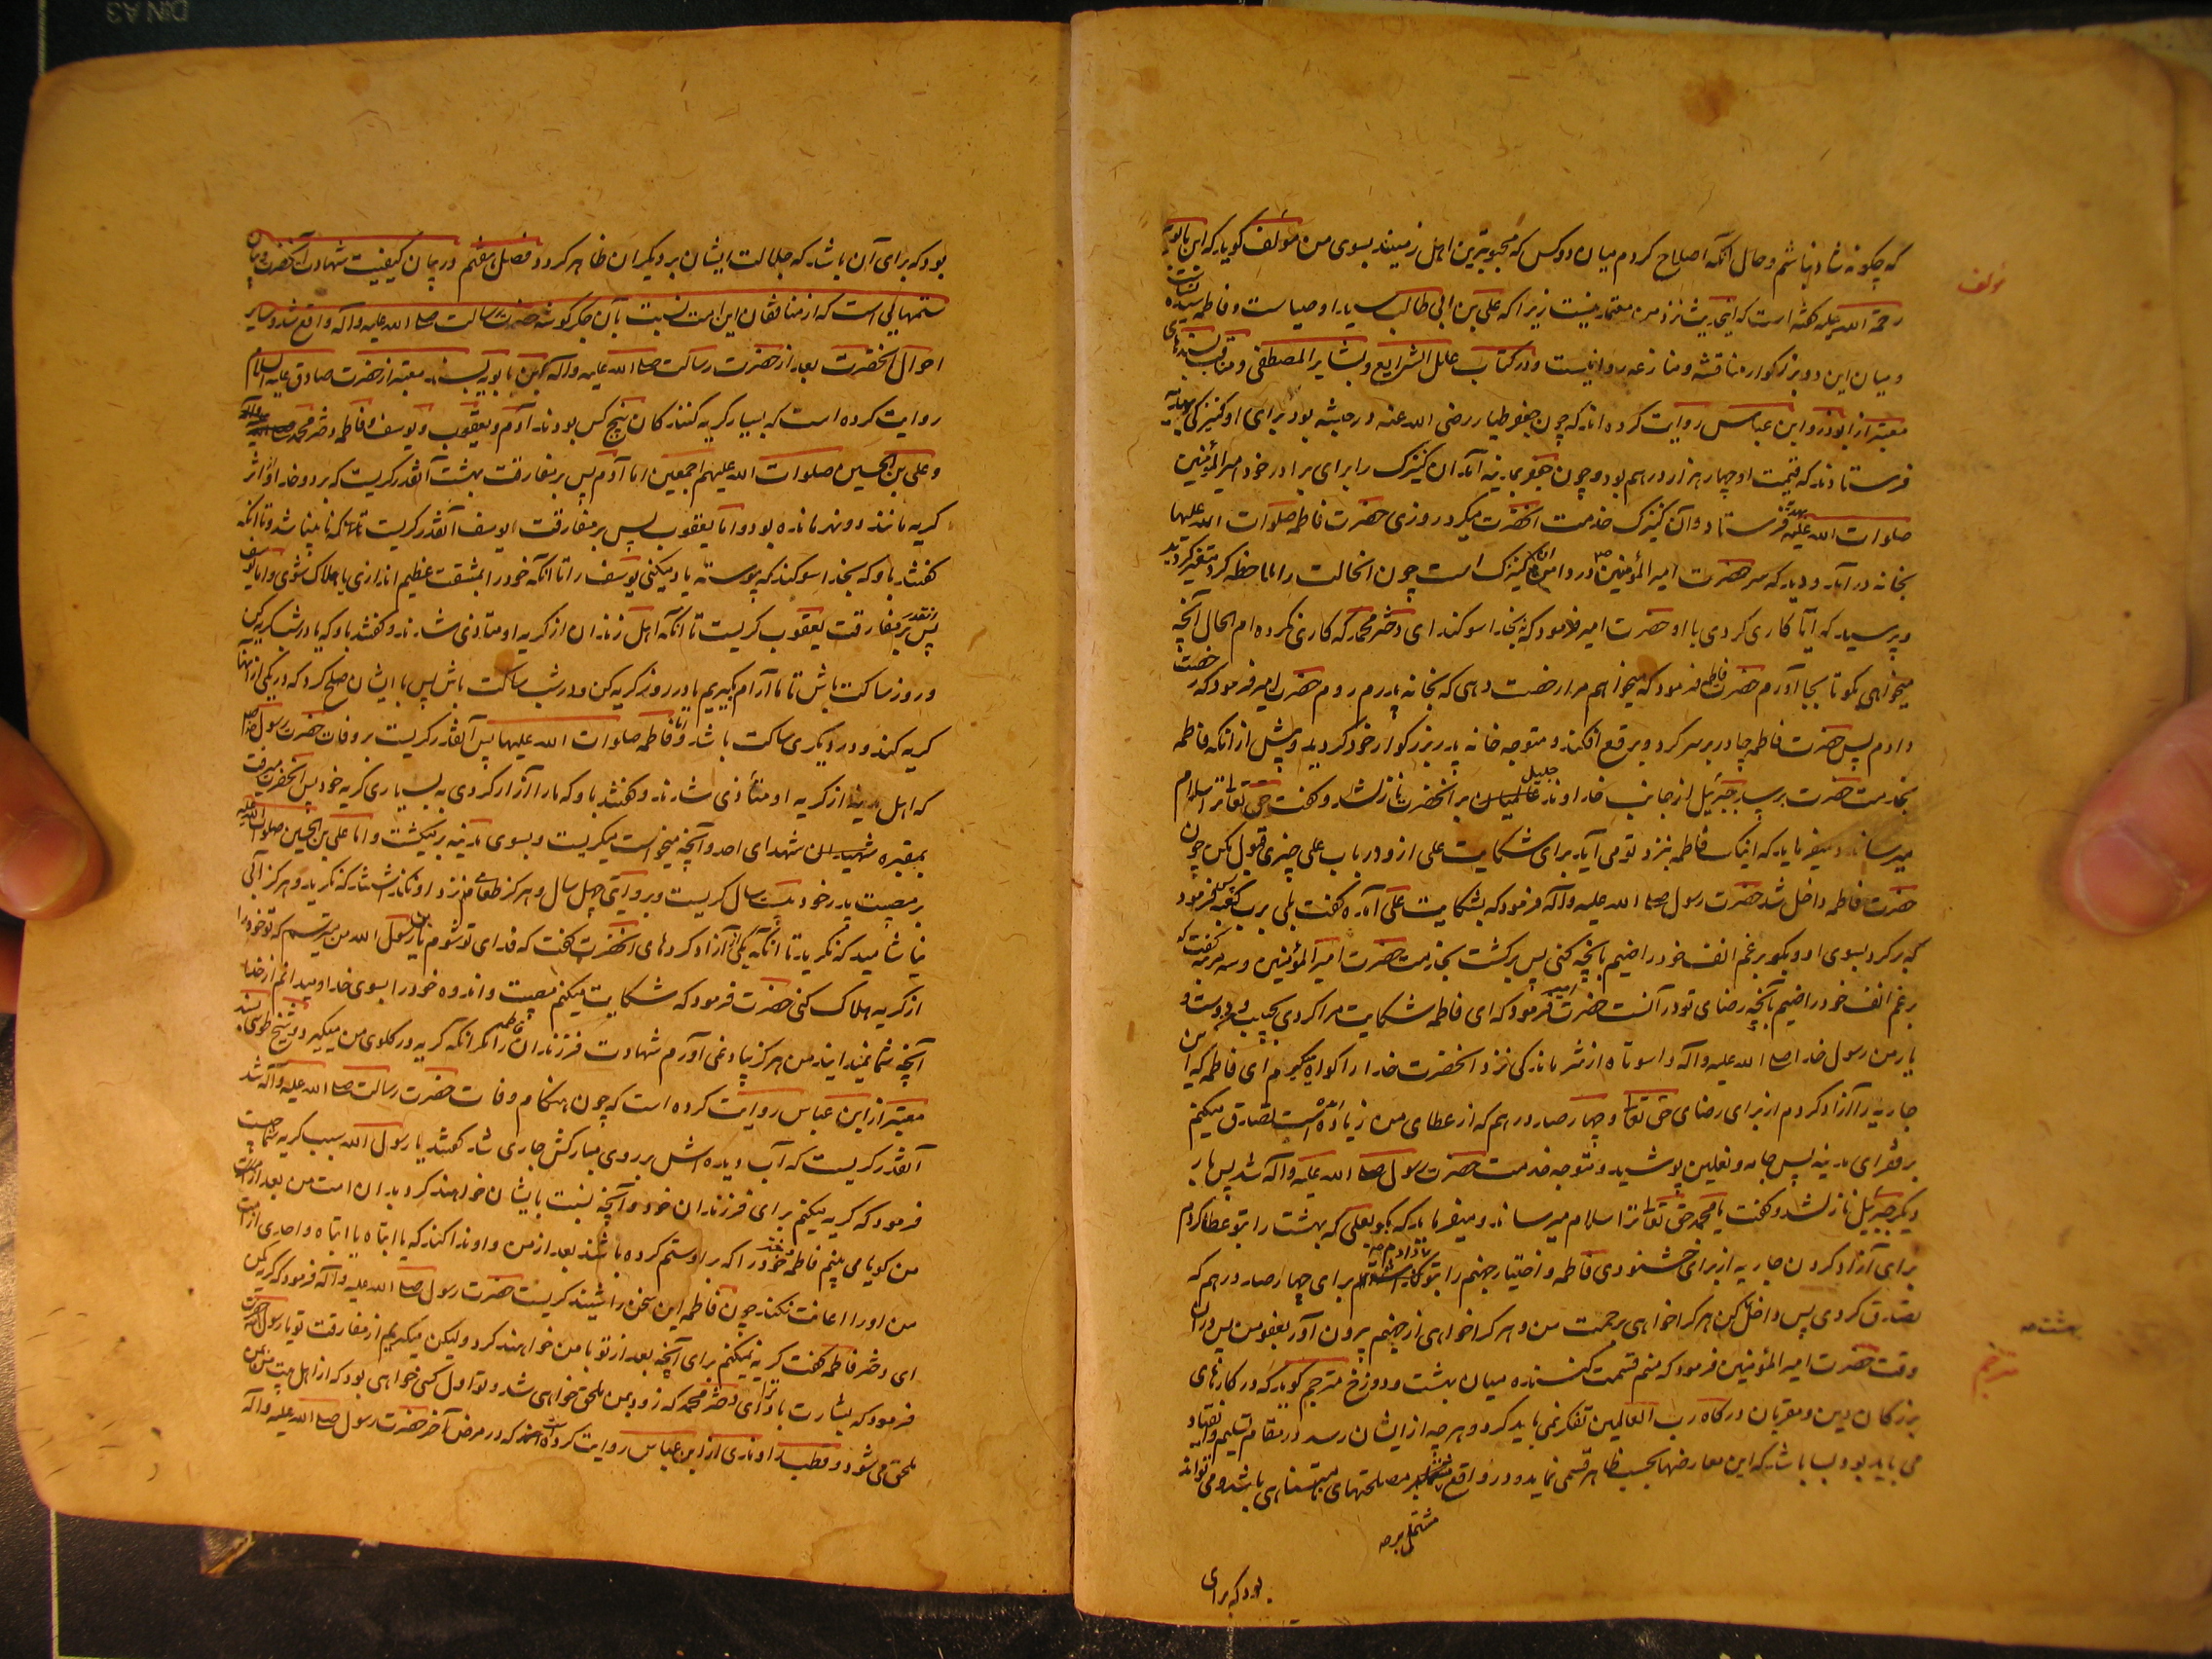 که چگونه شاد نباشم و حال آنکه اصلاح کردم میان دو کس که محبوبترین اهل زمینند بسوی من مؤلف گوید که ابن بابویه
مؤلف
رحمة الله علیه گفته است که این حدیث نزد من معتمد نیست زیرا که علی بن ابی طالب سید اوصیا است و فاطمه سیده نساء
و میان این دو بزرگوار مناقشه و منازعه روا نیست و در کتاب علل الشرایع و بشایر المصطفی و مناقب بسندهای
معتبر از ابوذر و ابن عباس روایت کرده اند که چون جعفر طیار رضی الله عنه در حبشه بود برای او کنیزکی بهدیه
فرستادند که قیمت او چهار هزار درهم بود و چون جعفر بمدینه آمد آن کنیزک را برای برادر خود امیر المؤمنین
صلوات الله علیه بهدیه فرستاد و آن کنیزک خدمت آنحضرت میکرد روزی حضرت فاطمه صلوات الله علیها
بخانه در آمد و دید که سر حضرت امیر المؤمنین در دامن آن کنیزک است چون آنحالت را ملاحظه کرد متغیر گردید
و پرسید که آیا کاری کردی با او حضرت امیر فرمود که بخدا سوکند ای دختر محمد که کاری نکرده ام الحال آنچه
میخواهی بگو تا بجا آورم حضرت فاطمه فرمود که میخواهم مرا رخصت دهی که بخانه پدرم روم حضرت امیر فرمود که رخصت
دادم پس حضرت فاطمه چادر بر سر کرد و برقع افکند و متوجه خانه پدر بزرگوار خود گردید و پیش از آنکه فاطمه
بخدمت حضرت برسد جبرئیل از جانب خداوند جلیل بر آنحضرت نازلشد و گفت حق تعالی ترا سلام
میرساند و میفرماید که اینک فاطمه بنزد تو می آید برای شکایت علی از او در باب علی چیزی قبول مکن چون
حضرت فاطمه داخل شد حضرت رسول صلی الله علیه و آله فرمود که بشکایت علی آمده گفت بلی برب کعبه فرمود
که برگرد بسوی او و بگو برغم انف خود راضیم بآنچه کنی پس برگشت بخدمت حضرت امیر المؤمنین و سه مرتبه گفت که
برغم انف خود راضیم بآنچه رضای تو در آنست حضرت امیر فرمود که ای فاطمه شکایت مرا کردی بحبیب و دوست و
یار من رسول خدا صلی الله علیه و آله وا سوتاه از شرمندگی نزد آنحضرت خدا را گواه میگیرم ای فاطمه که این
جاریه را آزاد کردم از برای رضای حق تعالی و چهار صد درهم که از عطای من زیاده آمده است تصدق میکنم
بر فقرای مدینه پس جامه و نعلین پوشید و متوجه خدمت حضرت رسول صلی الله علیه و آله شد پس بار
دیگر جبرئیل نازلشد و گفت یا محمد حق تعالی ترا سلام میرساند و میفرماید که بگو بعلی که بهشت را بتو عطا کردم
برای آزاد کردن جاریه از برای خشنودی فاطمه و اختیار جهنم را بتو برای چهار صد درهم که
تصدق کردی پس داخل بهشت کن هر کرا خواهی برحمت من و هر کرا خواهی از جهنم بیرون آور بعفو من پس در آن
بهشت صح
وقت حضرت امیر المؤمنین فرمود که منم قسمت کننده میان بهشت و دوزخ مترجم گوید که در کارهای
مترجم
بزرگان دین و مقربان درگاه رب العالمین تفکر نمی باید کرد و هر چه از ایشان رسد در مقام تسلیم و انقیاد
می باید بود بسا باشد که این معارضها بحسب ظاهر قسمی نماید و در واقع مشتمل بر مصلحتهای نامتناهی باشد و می تواند
مشتمل بر صح
بود که برای
بود که برای آن باشد که جلالت ایشان بر دیگران ظاهر گردد فصل هفتم در بیان کیفیت شهادت آنحضرت و بیان
ستمهایی است که از منافقان این امت نسبت بآن جگر گوشه حضرت رسالت صلی الله علیه و آله واقع شد و سایر
احوال آنحضرت بعد از حضرت رسالت صلی الله علیه و آله ابن بابویه بسند معتبر از حضرت صادق علیه السلام
روایت کرده است که بسیار گریه کنندکان پنج کس بودند آدم و یعقوب و یوسف و فاطمه دختر محمد
و علی بن الحسین صلوات الله علیهم اجمعین اما آدم پس بر مفارقت بهشت آنقدر گریست که بر دو خد او اثر
گریه مانند دو نهر مانده بود و اما یعقوب پس بر مفارقت یوسف آنقدر گریست که نابینا شد و تا آنکه
گفتند باو که بخدا سوکند که پیوسته یاد میکنی یوسف را تا آنکه خود را بمشقت عظیم اندازی یا هلاک شوی و اما یوسف
پس بر مفارقت یعقوب آنقدر گریست تا آنکه اهل زندان از گریه او متاذی شدند و گفتند باو که یا در شب گریه کن
و روز ساکت باش تا ما آرام گیریم یا در روز گریه کن و در شب ساکت باش پس با ایشان صلح کرد که در یکی از آنها
گریه کند و در دیگری ساکت باشد و اما فاطمه صلوات الله علیها پس آنقدر گریست بر وفات حضرت رسول خدا
که اهل مدینه از گریه او متأذی شدند و گفتند باو که ما را آزار کردی به بسیاری گریه خود پس آنحضرت میرفت
بمقبره شهدای احد و آنچه میخواست میگریست و بسوی مدینه برمیگشت و اما علی بن الحسین صلوات الله علیه
بر مصیبت پدر خود بیست سال گریست و بروایتی چهل سال و هرگز طعامی نزد او نگذاشتند که نگرید و هرگز آبی
نیاشامید که نگرید تا آنکه یکی از آزاد کردهای آنحضرت گفت که فدای تو شوم یابن رسول الله من میترسم که تو خود را
از گریه هلاک کنی حضرت فرمود که شکایت میکنم مصیبت و اندوه خود را بسوی خدا و میدانم از خدا
آنچه شما نمیدانید من هرگز بیاد نمی آورم شهادت فرزندان فاطمه را مگر آنکه گریه در گلوی من میگیرد و شیخ طوسی بسند
معتبر از ابن عباس روایت کرده است که چون هنگام وفات حضرت رسالت صلی الله علیه و آله شد
آنقدر گریست که آب دیده اش بر روی مبارکش جاری شد گفتند یا رسول الله سبب گریه شما چیست
فرمود که گریه میکنم برای فرزندان خود و آنچه نسبت بایشان خواهند کرد بدان امت من بعد از من
من گویا می بینم فاطمه دختر خود را که بر او ستم کرده باشند بعد از من و او ندا کند که یا ابتاه یا ابتاه و احدی از امت
من او را اعانت نکند چون فاطمه این سخن را شنید گریست حضرت رسول صلی الله علیه و آله فرمود که گریه مکن
ای دختر فاطمه گفت گریه نمیکنم برای آنچه بعد از تو با من خواهند کرد ولیکن میگریم از مفارقت تو یا رسول الله حضرت
فرمود که بشارت باد ترا ای دختر محمد که زود بمن ملحق خواهی شد و تو اول کسی خواهی بود که از اهل بیت من بمن
ملحق می شود و قطب راوندی از ابن عباس روایت کرده است که در مرض آخر حضرت رسول صلی الله علیه و آله